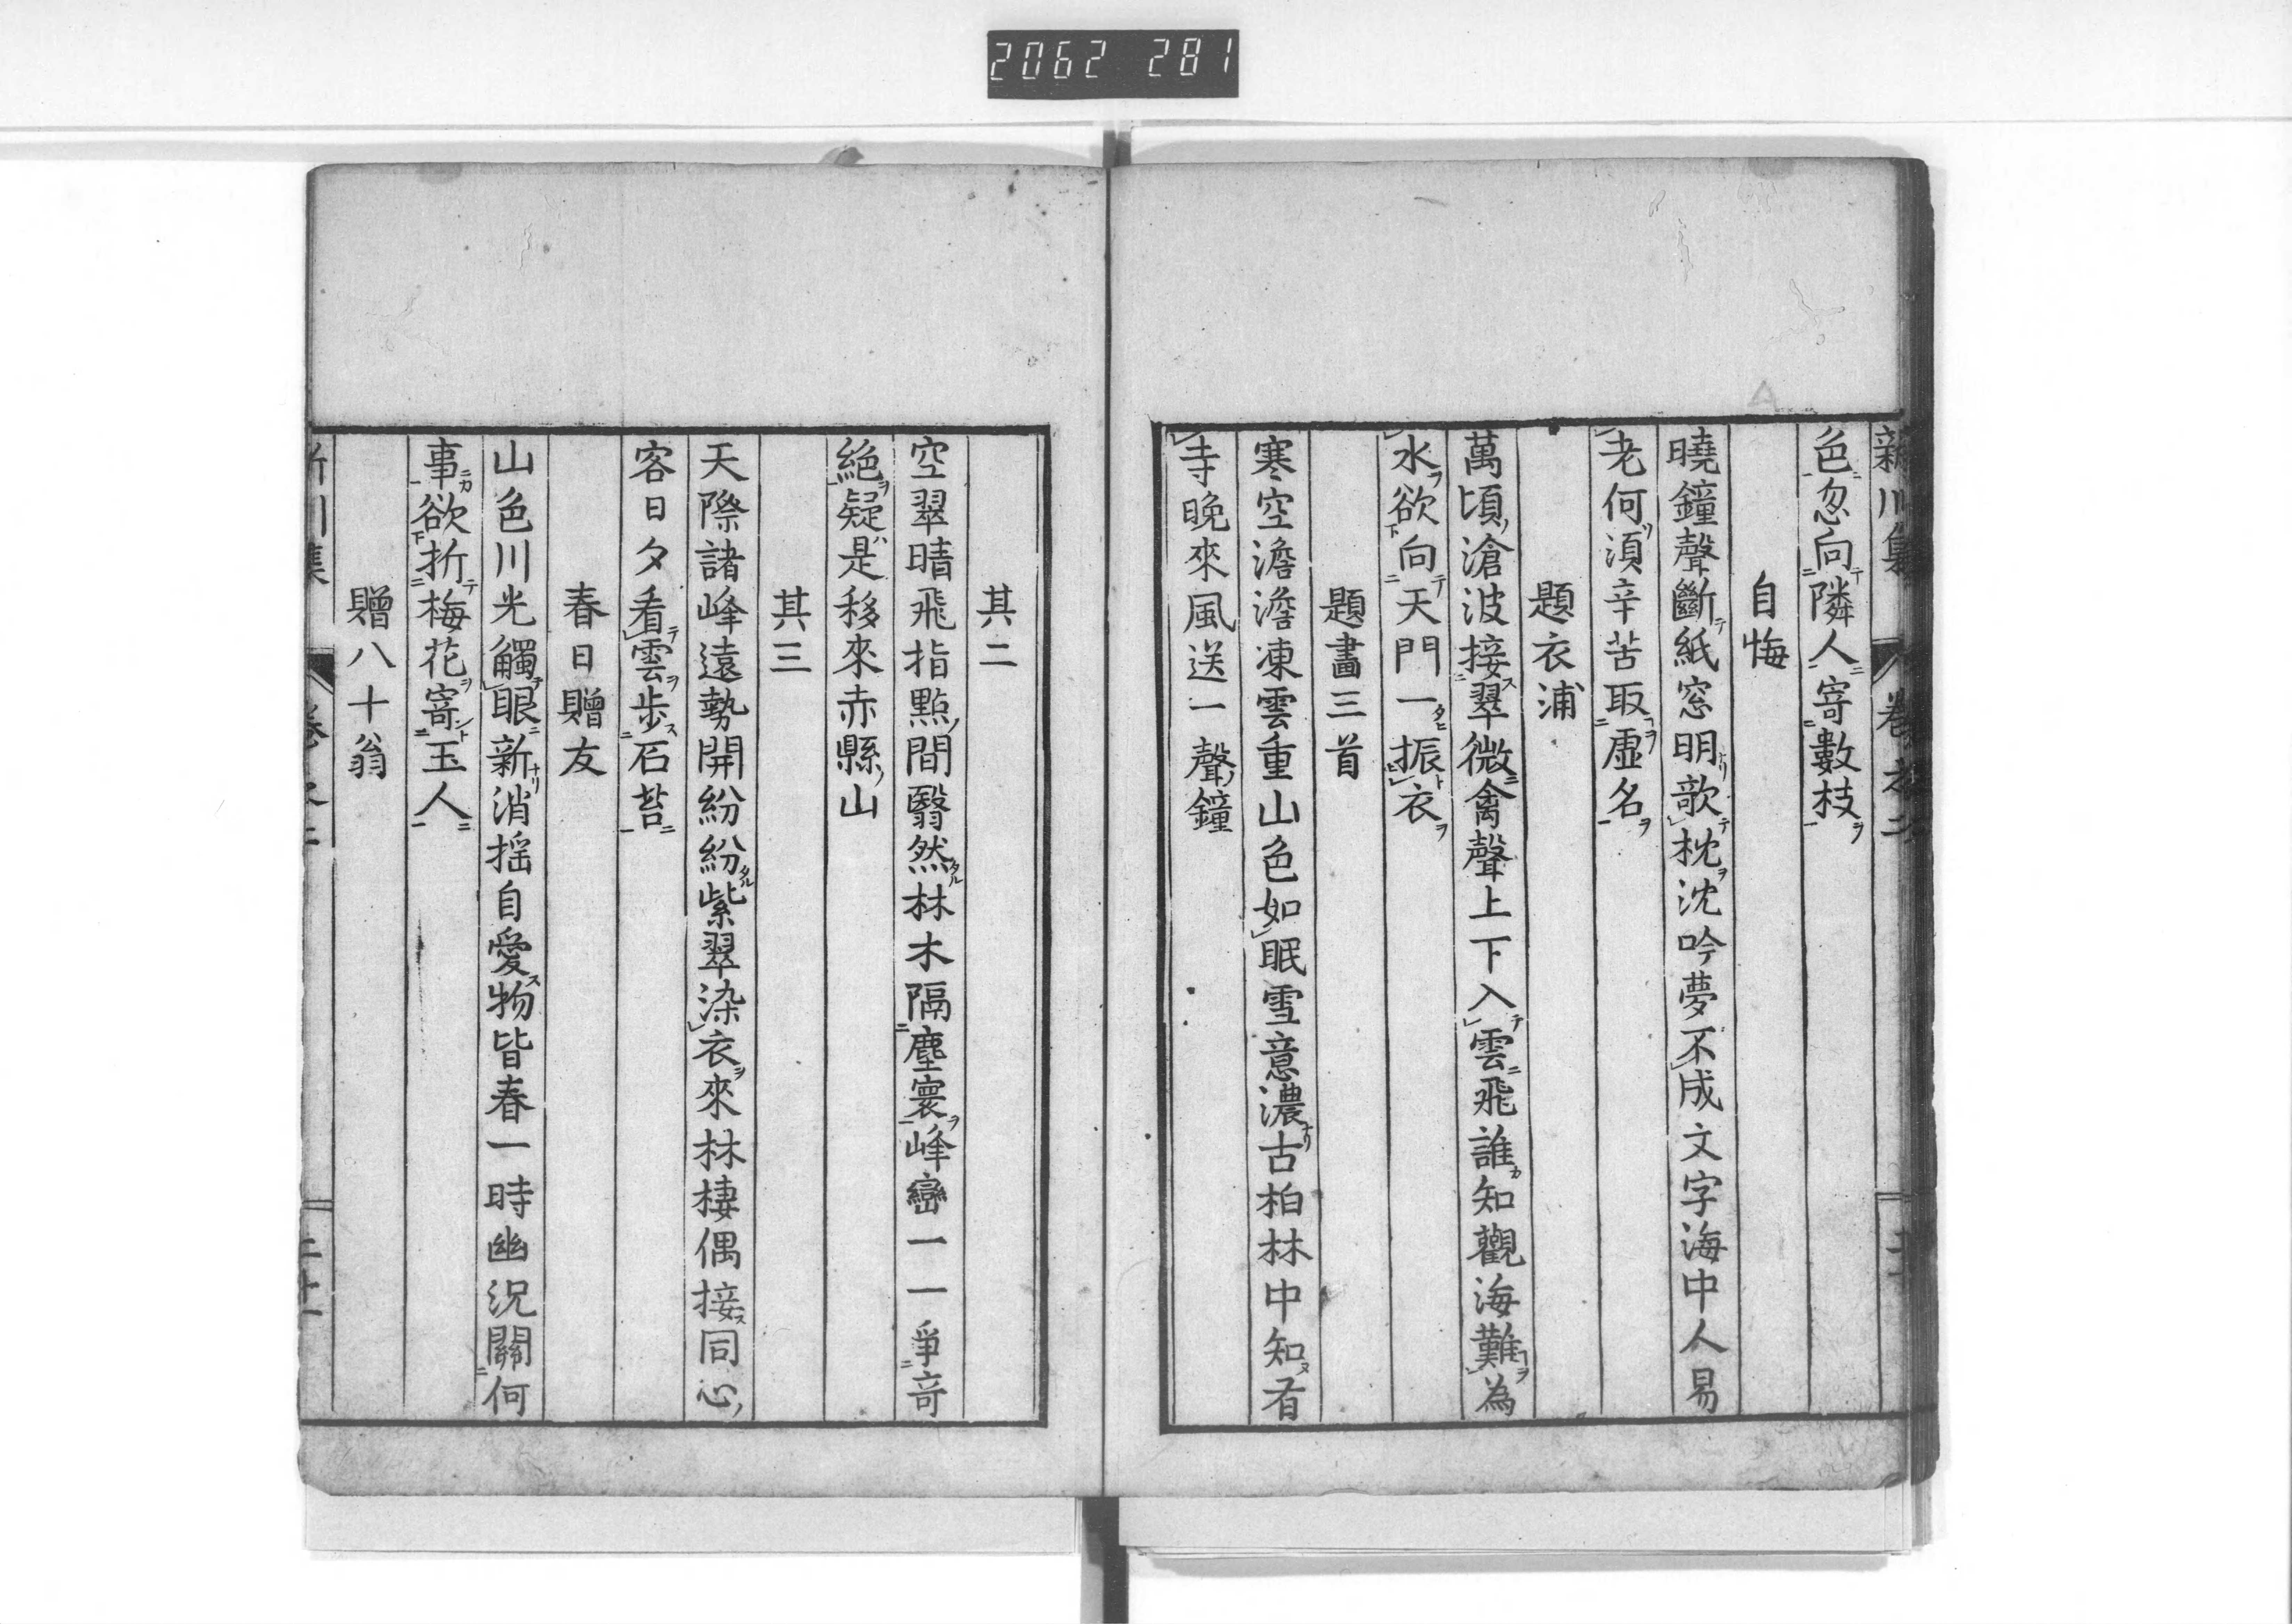 2062 281
新川集 卷之二
色忽向隣人寄數枝
自悔
曉鐘聲斷紙窓明歌枕沈吟夢不成文字海中人易
老何湏辛苦取虛名
題衣浦
萬頃滄波接翠微禽聲上下入雲飛誰知觀海難為
水欲向天門一振衣
題畵三首
寒空澹澹凍雲重山色如眠雪意濃古柏林中知有
寺晚來風送一聲鐘
其二
空翠晴飛指點間翳然林木隔塵寰峰巒一一爭竒
絕疑是移來赤縣山
其三
天際諸峰遠勢開紛紛紫翠染衣來林棲偶接同心
客日夕看雲步石苔
春日贈友
山色川光觸眼新消揺自愛物皆春一時幽況關何
事欲折梅花寄玉人
贈八十翁
新川集 卷之二 二十一